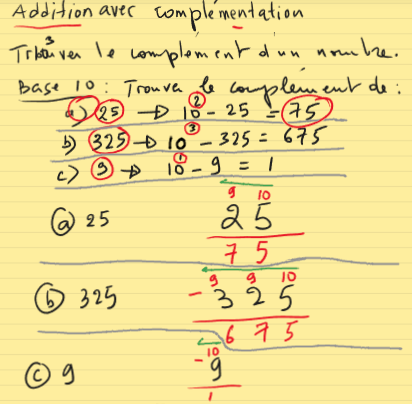 Addition avec complémentation
Trouver le complément d'un nombre.
Base 10 : Trouver le complément de :
a) 25 → 10² - 25 = 75
b) 325 → 10³ - 325 = 675
c) 9 → 10¹ - 9 = 1
9 10
ⓐ 25 2 5
7 5
9 9 10
ⓑ 325 - 3 2 5
6 7 5
10
ⓒ 9 - 9
1